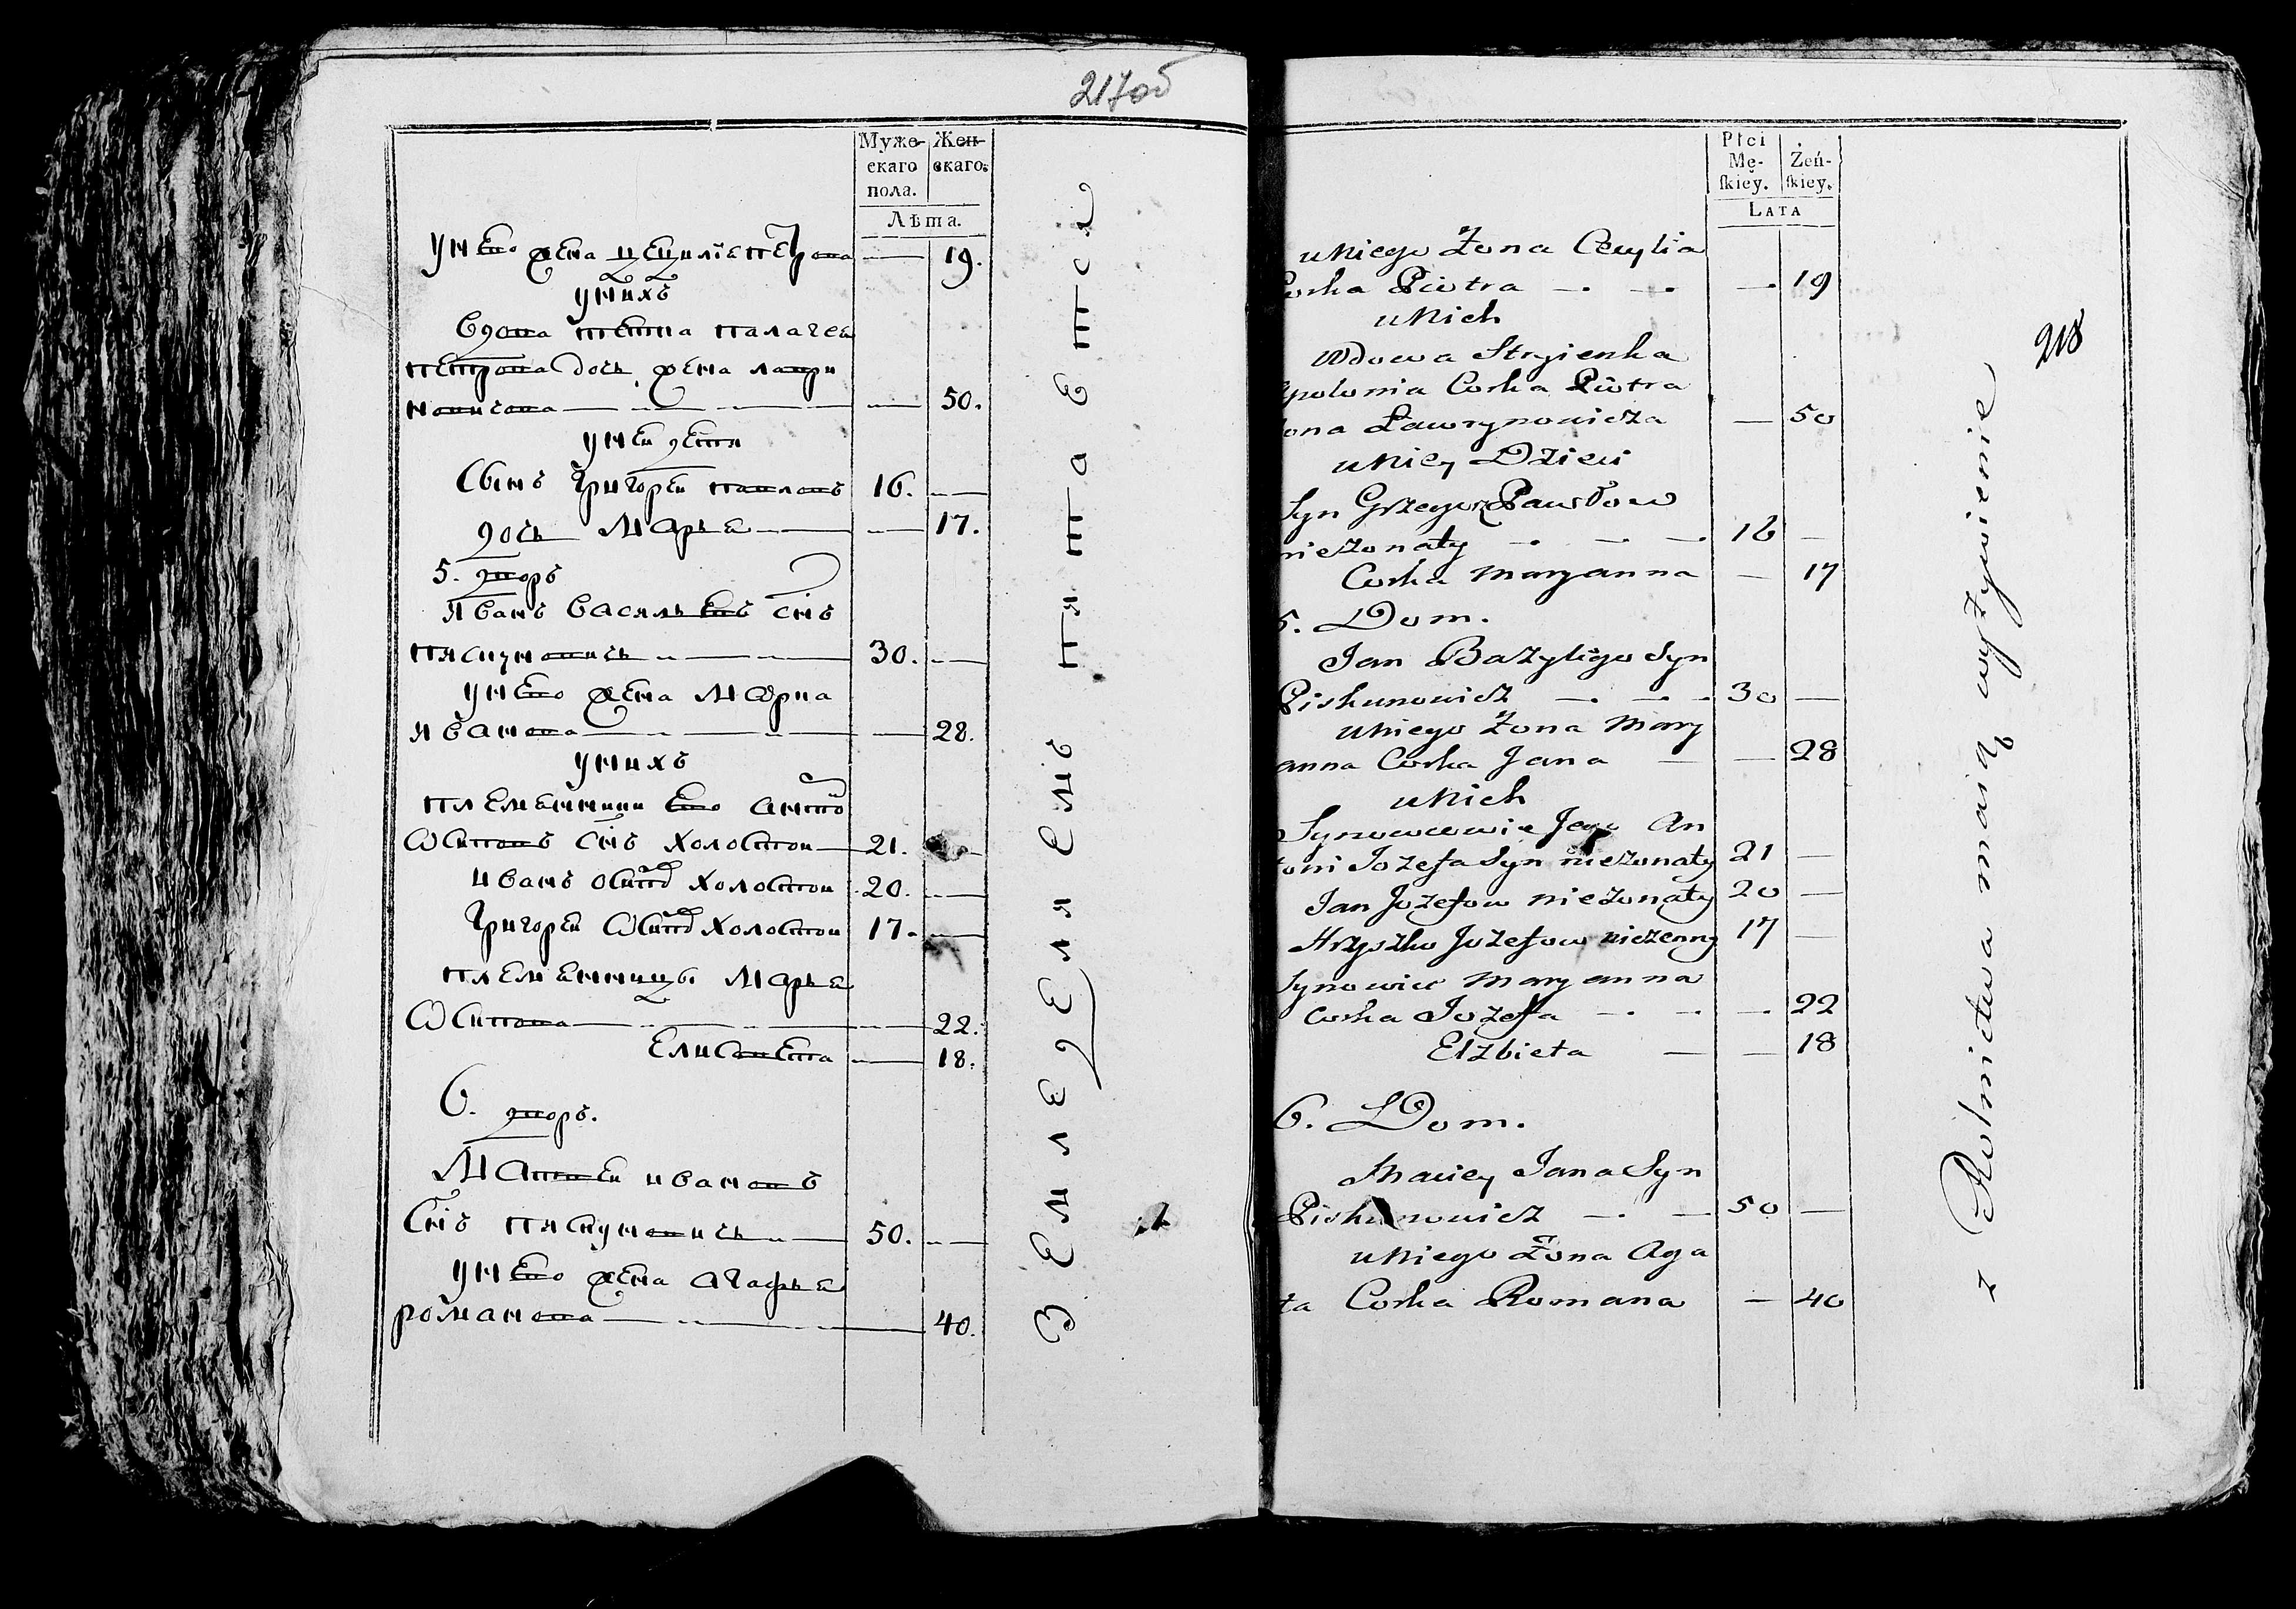 217об
Муже-
скаго
пола.
Жен-
скаго.
Лѣта.
у него жена цецилiе петрова — 19.
у нихъ
вдова тетка палагея
петрова дочь жена лаври
новичова — — 50.
у неи дети
Сынъ григореи павловъ 16. —
дочь Марья — — 17.
5. дворъ
Иванъ васильевъ снъ
пискуновичь — 30. —
у него жена Мариа
ивanова — — 28.
у нихъ
племянники его антo
Осиповъ снъ холостои — 21. —
иванъ осипо холостои 20. —
григореи Осипо холостои 17. —
племянницы Марья
Осипова — — 22.
Елисавета — 18.
6. дворъ.
Матвеи ивановъ
снъ пискуновичь — 50. —
у него жена агафья
романова — — 40.
Земледелиемъ питается
218
Płci
Mę-
ſkiey.
Żeń-
ſkiey.
LATA
u Niego Żona Cecylia
Corka Piotra — — 19
u Nich
Wdowa Stryienka
Apolonia Corka Piotra
Żona Ławrynowicza — 50
u Niey Dzieci
Syn Grzegorz Pawłow
nieżonaty — 16 —
Corka Maryanna — 17
5. Dom.
Jan Bazyligo Syn
Piskunowicz — 30 —
u Niego Żona Mary
anna Corka Jana — — 28
u Nich
Synowcowie Jego An
toni Jozefa Syn nieżonaty 21 —
Jan Jozefow nieżonaty 20 —
Hryszko Jozefow nieżenny 17 —
Synowic Maryanna
Corka Jozefa — — 22
Elzbieta — — 18
6. Dom.
Maciey Jana Syn
Piskunowicz — 50 —
u Niego Żona Aga
ta Corka Romana — 40
z Rolnictwa maią wyżywienie